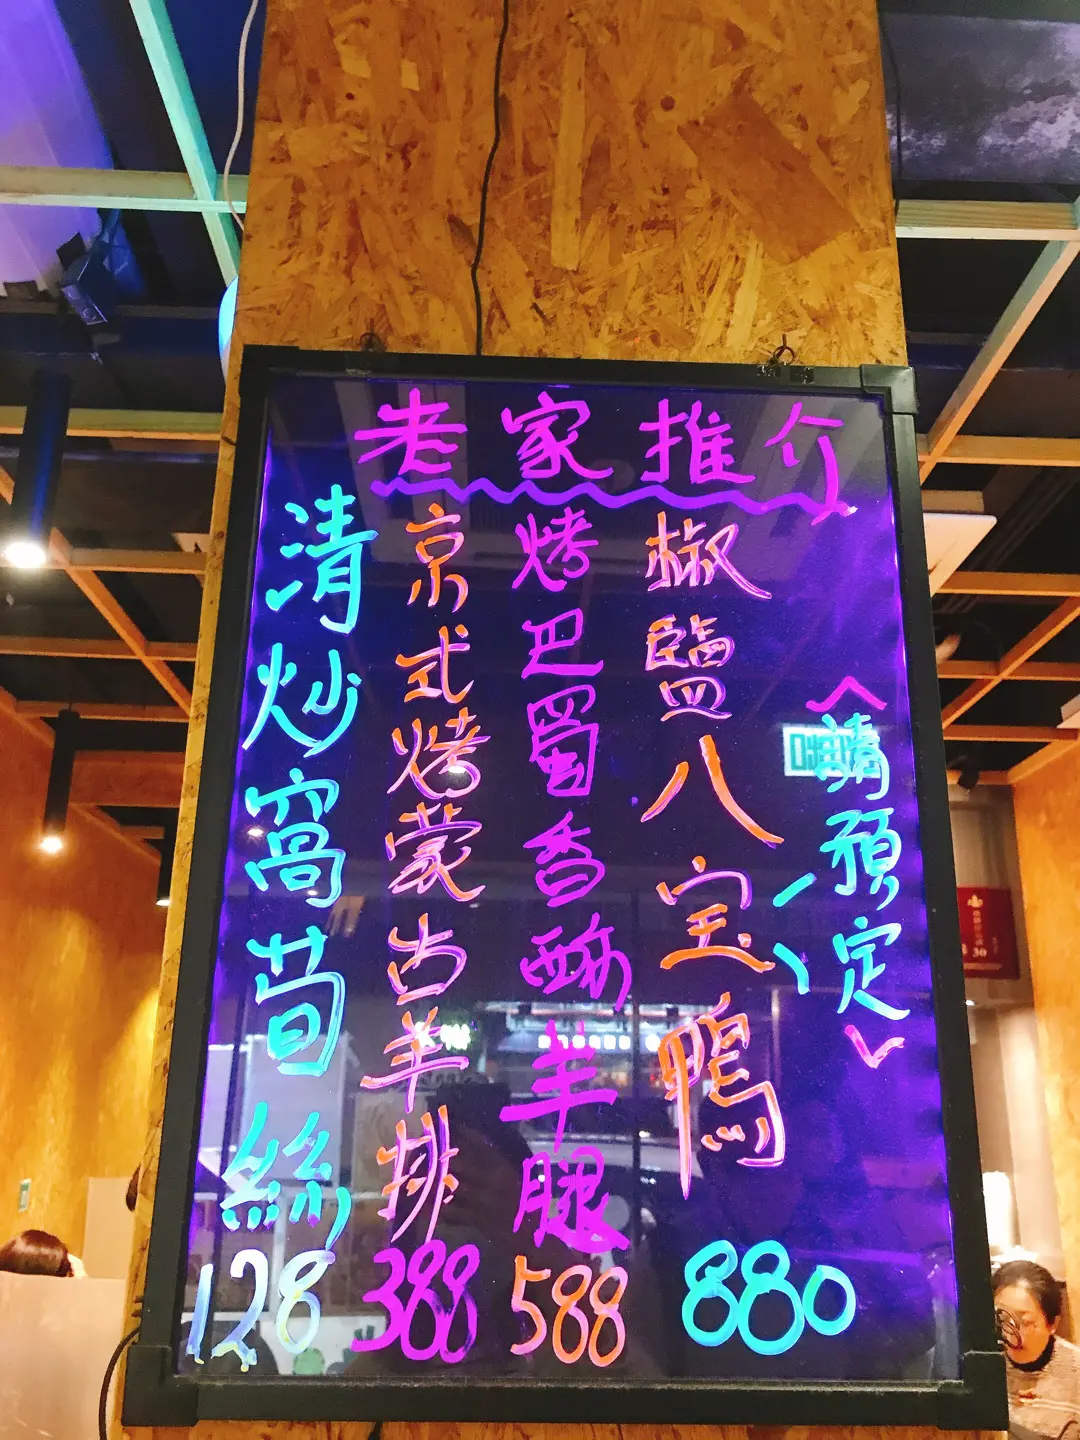 老家推介
椒鹽八宝鴨
880
<請預定>
烤巴蜀香酥羊腿
588
京式烤蒙古羊排
388
清炒窩苣絲
128